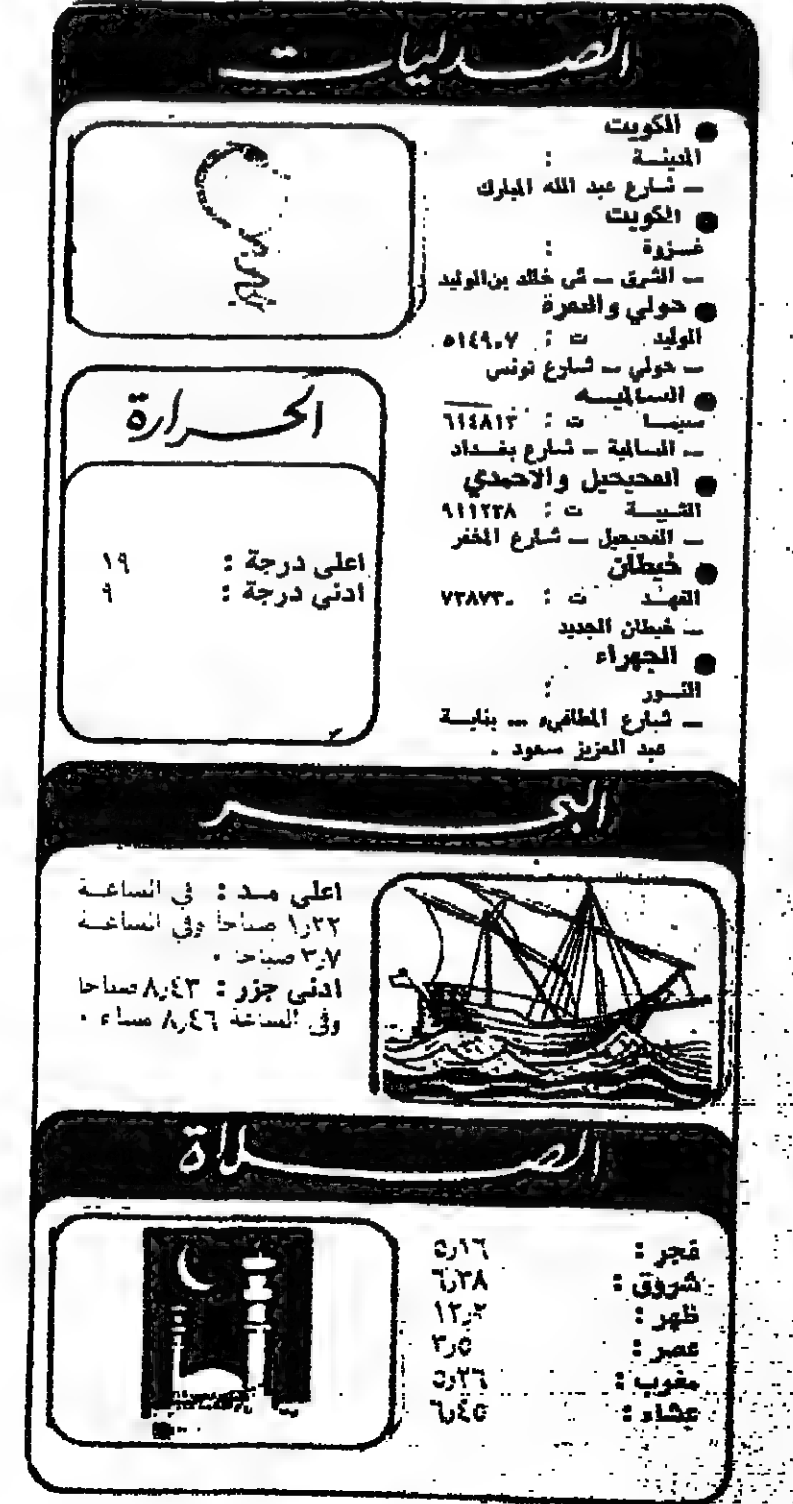 الصيدليات
● الكويت
المدينــة :
— شارع عبد الله المبارك
● الكويت
غــزوة :
— الشرق — ش خالد بن الوليد
● حولي والنقرة
الوليد ت : ٥١٤٩٠٧
— حولي — شارع تونس
● السالميــه
سينمــا ت : ٦١٤٨١٣
— السالمية — شارع بغــداد
● الفحيحيل والاحمدي
الشعيبــة ت : ٩١١٢٣٨
— الفحيحيل — شارع المخفر
● خيطان
الفهــد ت : ٧٣٨٧٣٠
— خيطان الجديد
● الجهراء
النــور :
— شارع المطافيء — بنايــة
عبد العزيز سعود .
الحــرارة
اعلى درجة : ١٩
ادنى درجة : ٩
البحــر
اعلى مــد : في الساعــة
١٫٢٢ صباحا وفي الساعــة
٣٫٧ صباحا .
ادنى جزر : ٨٫٤٣ صباحا
وفي الساعة ٨٫٤٦ مساء .
الصــلاة
فجر : ٥٫١٦
شروق : ٦٫٣٨
ظهر : ١٢٫٢
عصر : ٣٫٥
مغرب : ٥٫٢٦
عشاء : ٦٫٤٥